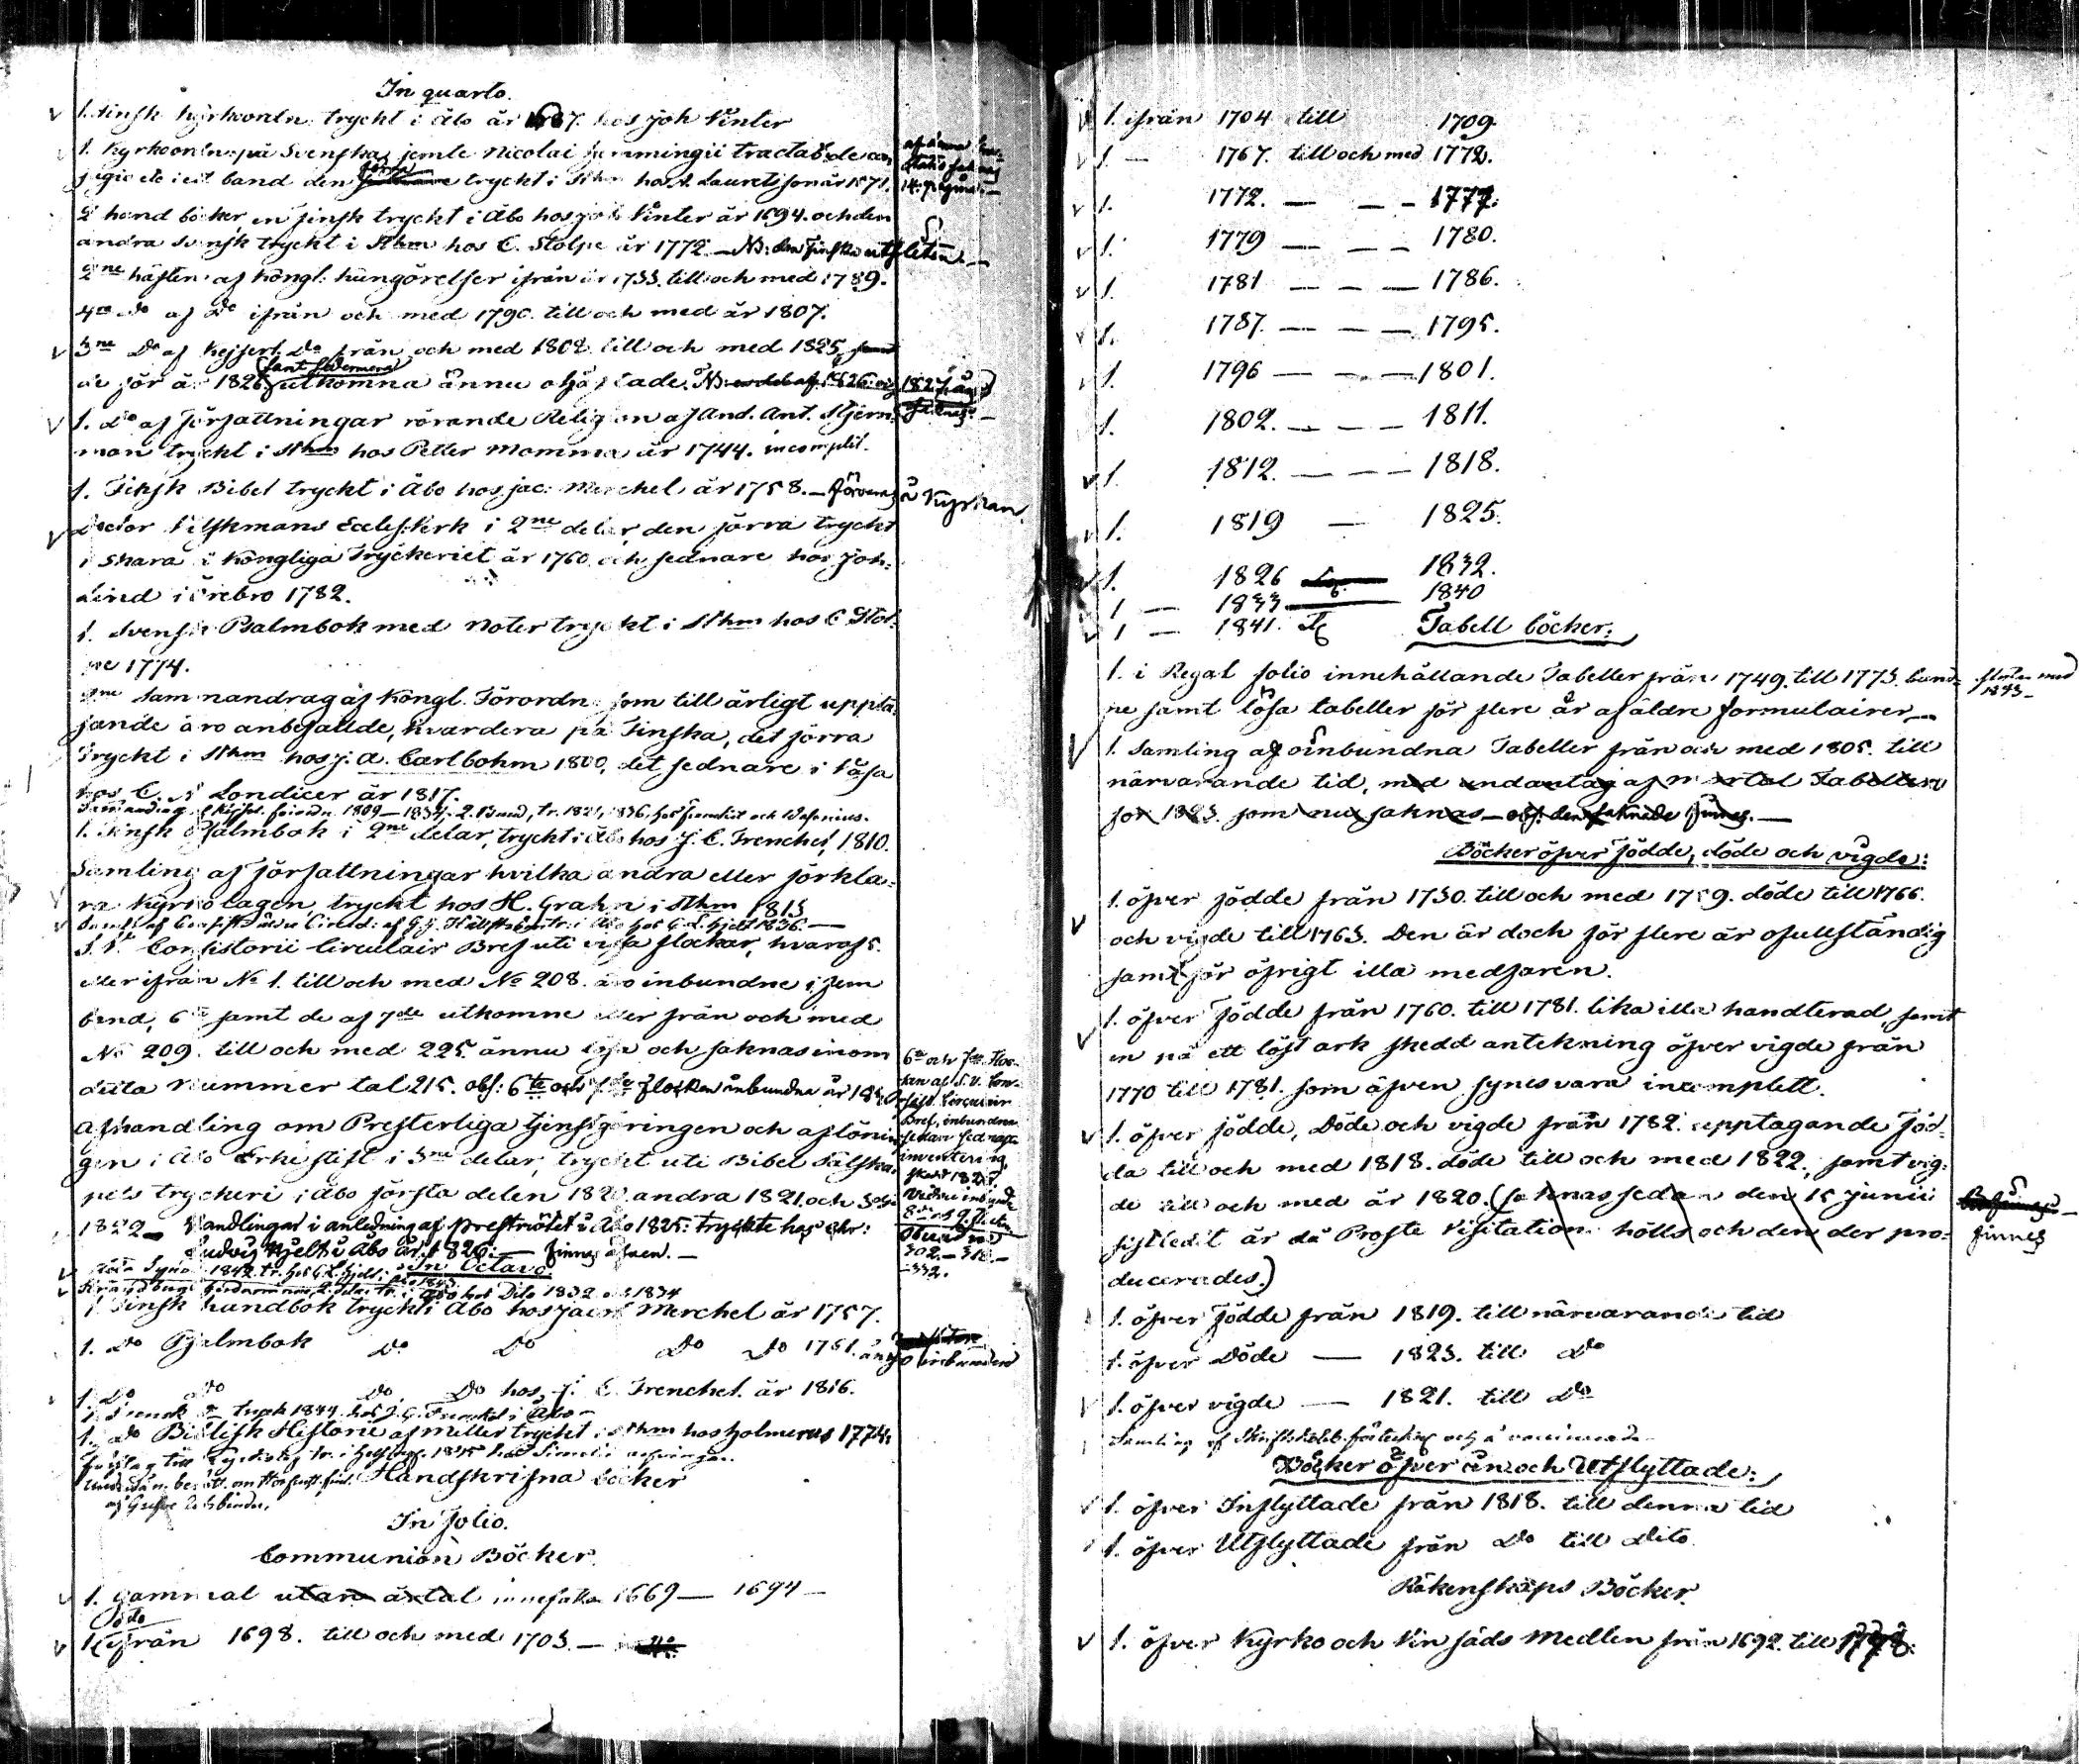 In quarto.
1. Finsk kyrkoordn: tryckt i Åbo år 1687. hos Joh Winter
1. Kyrkoordn: på Svenska, jemte Nicolai Hemmingii tractat: de con
jugio etc i ett band den förra tryckt i Sthm hos A. Lauretsson år 1571.
af denna
saknas
14. pagina:
2 hand böcker en Finsk tryckt i Åbo hos Joh Winter år 1694. och den
andra Svensk tryckt i Sthm hos C. Stolpe år 1772. — NB: den Finska utsleten. —
2ne häften af Kongl: kungörelser ifrån år 1733. till och med 1789.
4ra Do af Do ifrån och med 1790. till och med år 1807.
3ne Do af Kejserl. Do från och med 1808. till och med 1825,
samt sedermera
de för år 1826 utkomna ännu ohäftade. NB: 1826. 1827
1. do af Författningar rörande Religion af And. Ant. Stjern-
man tryckt i Sthm hos Petter Momma år 1744. incomplet.
1. Finsk Bibel tryckt i Åbo hos Jac: Merckel år 1758. — förvaras i Kyrkan.
Doctor Wilskmans Eccles. Verk i 2ne delar den förra tryckt
i Skara i Kongliga Tryckeriet år 1760. och sednare hos Joh:
Lind i Örebro 1782.
1. Svensk Psalmbok med Noter tryckt i Sthm hos C Stol-
pe 1774.
2ne Sammandrag af Kongl. Förordn: som till årligt upplä-
sande äro anbefallde, hvardera på Finska, det förra
Tryckt i Sthm hos J: A. Carlbohm 1800, det sednare i Vasa
hos C. A Londicer år 1817.
Sammandrag af Kejserl. förordn. 1809 — 1834. 2. Band, tr. 1821, 1836, hos Frenckel och Wasenius.
1. Finsk Psalmbok i 2ne delar, tryckt i Åbo hos J. C. Frenckel, 1810.
Samling af författningar hvilka ändra eller förkla-
ra Kyrkolagen tryckt hos H. Grahn i Sthm 1813
S. V. Consistorii Circulair Bref uti vissa flockar, hvaraf 5.
eller ifrån No 1. till och med No 208. äro inbundne i fem
band, 6te samt de af 7de utkomne eller från och med
No 209. till och med 225. ännu lösa och saknas inom
detta Nummer tal 215. obs: 6te och 7de flocken inbundna år
6te och 7de Floc-
kan af S. V. Con-
sist. Circulair
Bref, inbundna
sedan sednaste
inventering
skedt 1828.
302 — 318. —
— 332.
Afhandling om Presterliga tjenstgöringen och aflönin
gen i Åbo Erkestift i 3ne delar, tryckt uti Bibel Sälska-
pets tryckeri i Åbo första delen 1820. andra 1821. och 3dje
1822 — Handlingar i anledning af prestmötet i Åbo 1825: tryckte hos Chr:
Ludvig Hjelt i Åbo år 1826. — finnes äfven. —
In Octavo.
1. Finsk handbok tryckt i Åbo hos Jacob Merckel år 1757.
1. Do Psalmbok Do Do Do Do 1761.
inbunden
1. Do Do Do Do hos J. C. Frenckel. år 1816.
1. Svensk Do tryck 1844 hos J. C. Frenckel i Åbo —
1. Do Biblisk Historie af Miller tryckt i Sthm hos Holmerus 1774.
Handskrifna Böcker
In folio.
Communion Böcker
1. gammal utan årtal innefattar 1669 — 1694 —
1. ifrån 1698. till och med 1703. —
1. ifrån 1704 till 1709.
1. — 1767. till och med 1772.
1. 1772. — — — 1777.
1. 1779 — — — 1780.
1. 1781 — — — 1786.
1. 1787. — — — 1795.
1. 1796 — — — 1801.
1. 1802. — — — 1811.
1. 1812. — — — 1818.
1. 1819 — 1825.
1. 1826 1832.
1 — 1833 1840
1 — 1841.
Tabell böcker:
1. i Regal folio innehållande Tabeller från 1749. till 1773. bund-
ne samt lösa tabeller för flere år af äldre formulairer —
slutar med
1773 —
1. Samling af oinbundna Tabeller från och med 1805. till
närvarande tid, med undantag af Mortal Tabellen
för 1823. som nu saknas — obs: den saknade finnes. —
Böcker öfver födde, döde och vigde:
1. öfver födde från 1730. till och med 1759. döde till 1766.
och vigde till 1763. Den är doch för flere år ofullständig
samt för öfrigt illa medfaren.
1. öfver Födde från 1760. till 1781. lika illa handterad, samt
en på ett löst ark skedd antekning öfver vigde från
1770 till 1781. som äfven synes vara incomplett.
1. öfver födde, Döde och vigde från 1782. upptagande Föd-
da till och med 1818. döde till och med 1822., samt vig-
de till och med år 1820. (saknas sedan den 15 Junii
sistledit år då Proste Visitation hölls och den der pro-
ducerades.)
finnes
1. öfver Födde från 1819. till närvarande tid
1. öfver Döde — 1823. till Do
1. öfver vigde — 1821. till Do
Böcker öfver In- och Utflyttade:
1. öfver Inflyttade från 1818. till denna tid
1. öfver Utflyttade från Do till Dito
Räkenskaps Böcker.
1. öfver Kyrko och Vin säds Medlen från 1692. till 1778.